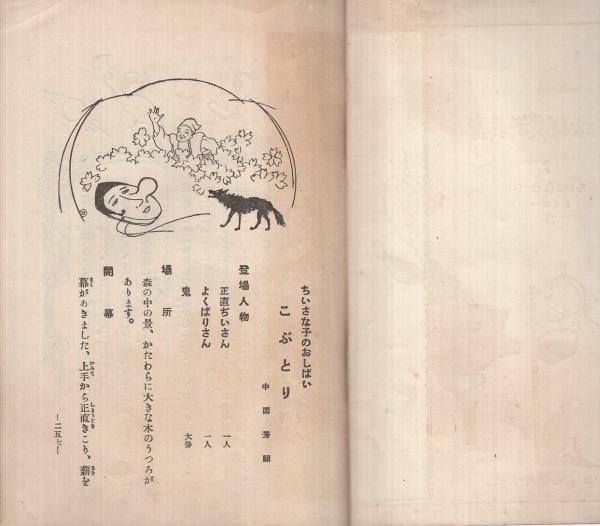 ちいさな子のおしばい
こぶとり
中西芳朗
登場人物
正直ぢいさん 一人
よくばりさん 一人
鬼 大勢
場所
森の中の景、かたわらに大きな木のうつろが
あります。
開幕
幕があきました、上手から正直きこり、薪を
―二五七―